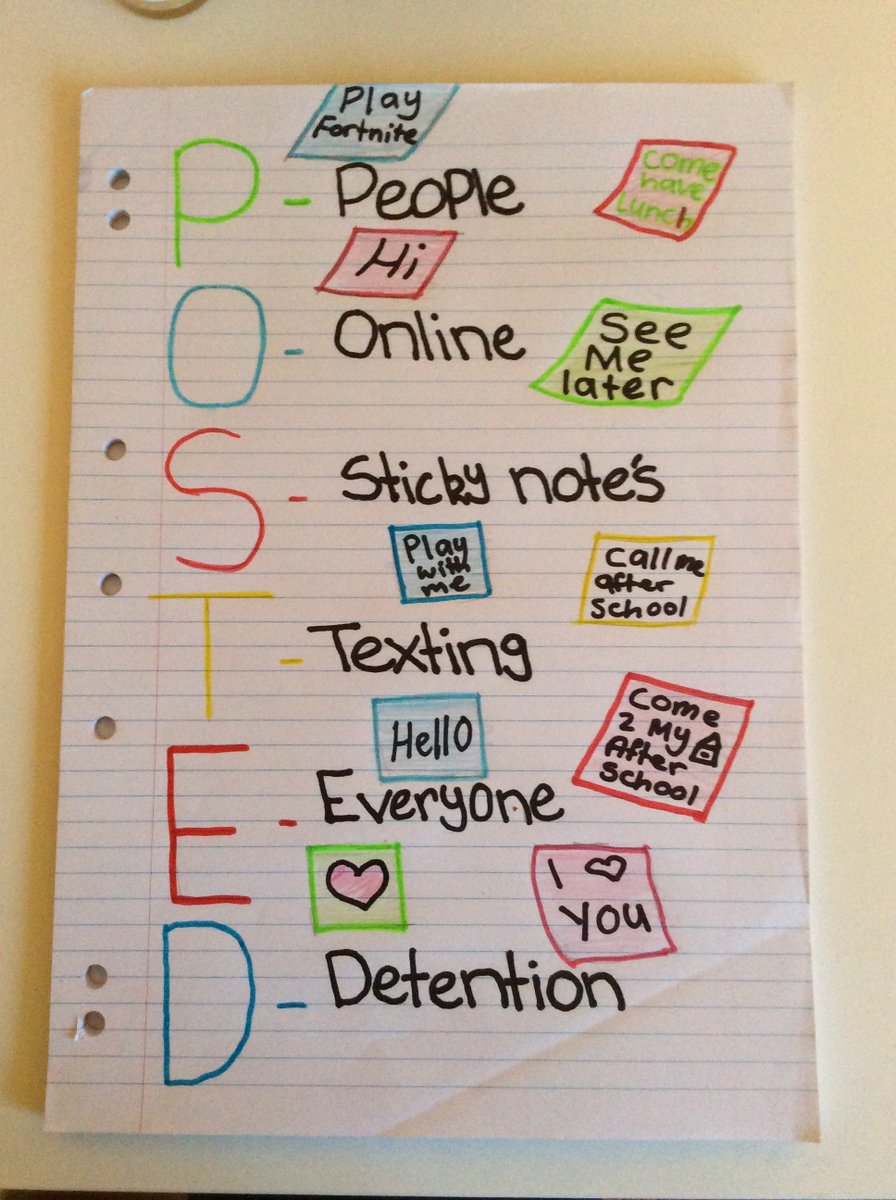 Play
Fortnite
P - People
come
have
Lunch
Hi
O - Online
See
Me
later
S - Sticky note's
Play
with
me
Call me
after
School
T - Texting
Hello
Come
2 My
After
School
E - Everyone
I ♡
you
D - Detention